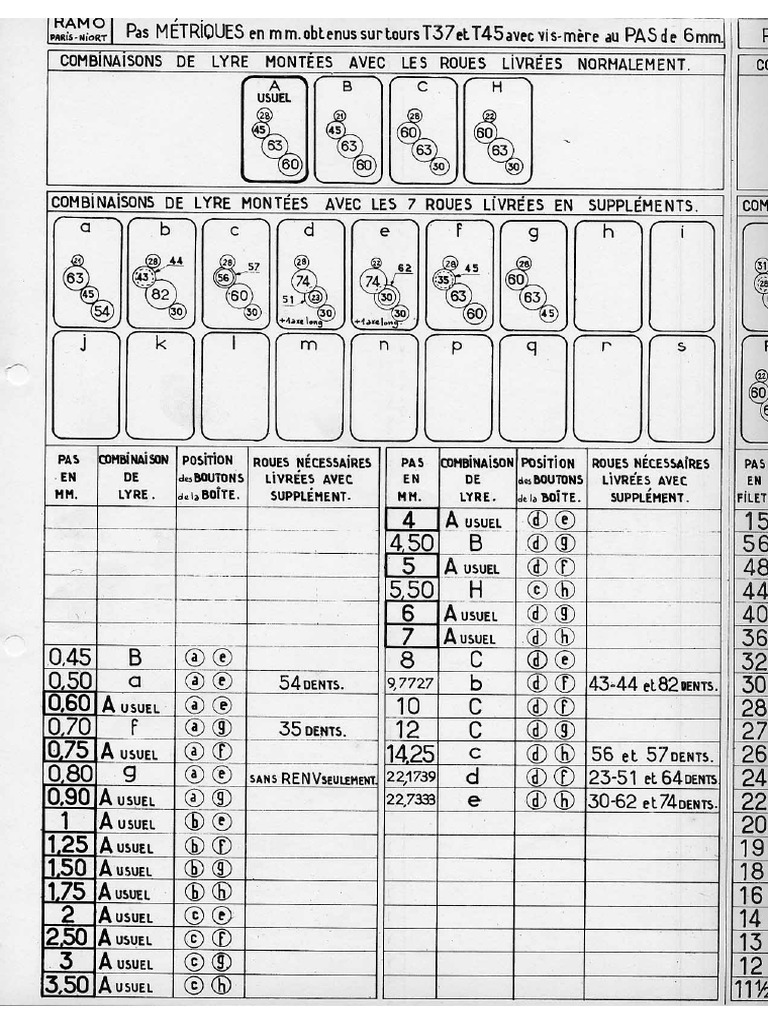 RAMO
PARIS-NIORT
Pas MÉTRIQUES en mm. obtenus sur tours T37 et T45 avec vis-mère au PAS de 6mm.
COMBINAISONS DE LYRE MONTÉES AVEC LES ROUES LIVRÉES NORMALEMENT.
A USUEL 28 45 63 60
B 21 45 63 60
C 28 60 63 30
H 22 60 63 30
COMBINAISONS DE LYRE MONTÉES AVEC LES 7 ROUES LIVRÉES EN SUPPLÉMENTS.
a 21 63 45 54
b 28 44 43 82 30
c 28 57 56 60 30
d 28 74 51 23 30 +1 axe long
e 22 62 74 30 30 +1 axe long
f 28 45 35 63 60
g 28 60 63 45
h
i
j k l m n p q r s
PAS EN MM. COMBINAISON DE LYRE. POSITION des BOUTONS de la BOÎTE. ROUES NÉCESSAIRES LIVRÉES AVEC SUPPLÉMENT.
0,45 B a e
0,50 a a e 54 DENTS.
0,60 A USUEL a e
0,70 f a g 35 DENTS.
0,75 A USUEL a f
0,80 g a e SANS RENV SEULEMENT.
0,90 A USUEL a g
1 A USUEL b e
1,25 A USUEL b f
1,50 A USUEL b g
1,75 A USUEL b h
2 A USUEL c e
2,50 A USUEL c f
3 A USUEL c g
3,50 A USUEL c h
PAS EN MM. COMBINAISON DE LYRE. POSITION des BOUTONS de la BOÎTE. ROUES NÉCESSAIRES LIVRÉES AVEC SUPPLÉMENT.
4 A USUEL d e
4,50 B d g
5 A USUEL d f
5,50 H c h
6 A USUEL d g
7 A USUEL d h
8 C d e
9,7727 b d f 43-44 et 82 DENTS.
10 C d f
12 C d g
14,25 c d h 56 et 57 DENTS.
22,1739 d d f 23-51 et 64 DENTS.
22,7333 e d h 30-62 et 74 DENTS.
COM
31
28
22
60
PAS
EN
FILET
15
56
48
44
40
36
32
30
28
27
26
24
22
20
19
18
16
14
13
12
11½